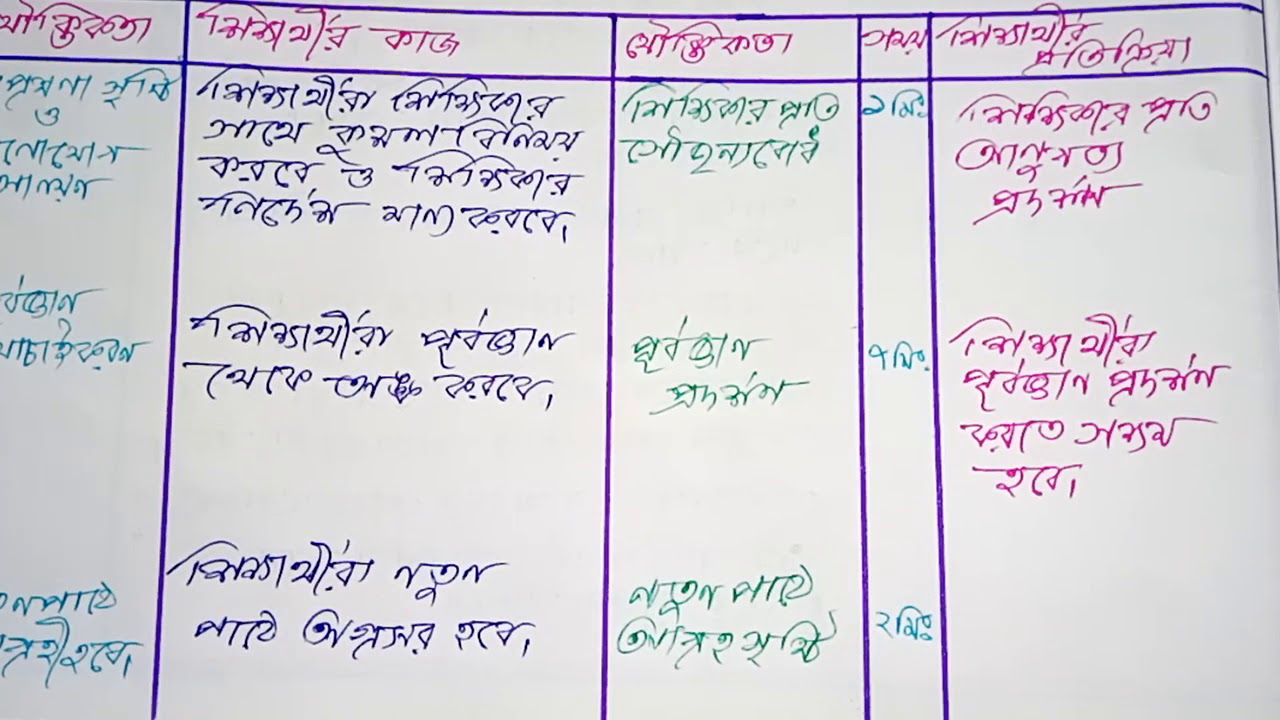 যৌক্তিকতা
শিক্ষার্থীর কাজ
যৌক্তিকতা
সময়
শিক্ষার্থীর
প্রতিক্রিয়া
প্রেষণা সৃষ্টি
ও
মনোযোগ
শিক্ষার্থীরা শিক্ষিকার
সাথে কুশল বিনিময়
করবে ও শিক্ষিকার
নির্দেশ মান্য করবে।
শিক্ষিকার প্রতি
সৌজন্যবোধ
১মিঃ
শিক্ষিকার প্রতি
আনুগত্য
প্রদর্শন
র্বজ্ঞান
যাচাইকরন
শিক্ষার্থীরা পূর্বজ্ঞান
থেকে অঙ্ক করবে।
পূর্বজ্ঞান
প্রদর্শন
৭মিঃ
শিক্ষার্থীরা
পূর্বজ্ঞান প্রদর্শন
করতে সক্ষম
হবে।
তনপাঠে
গ্রহীহবে।
শিক্ষার্থীরা নতুন
পাঠে অগ্রসর হবে।
নতুন পাঠে
আগ্রহ সৃষ্টি
২মিঃ